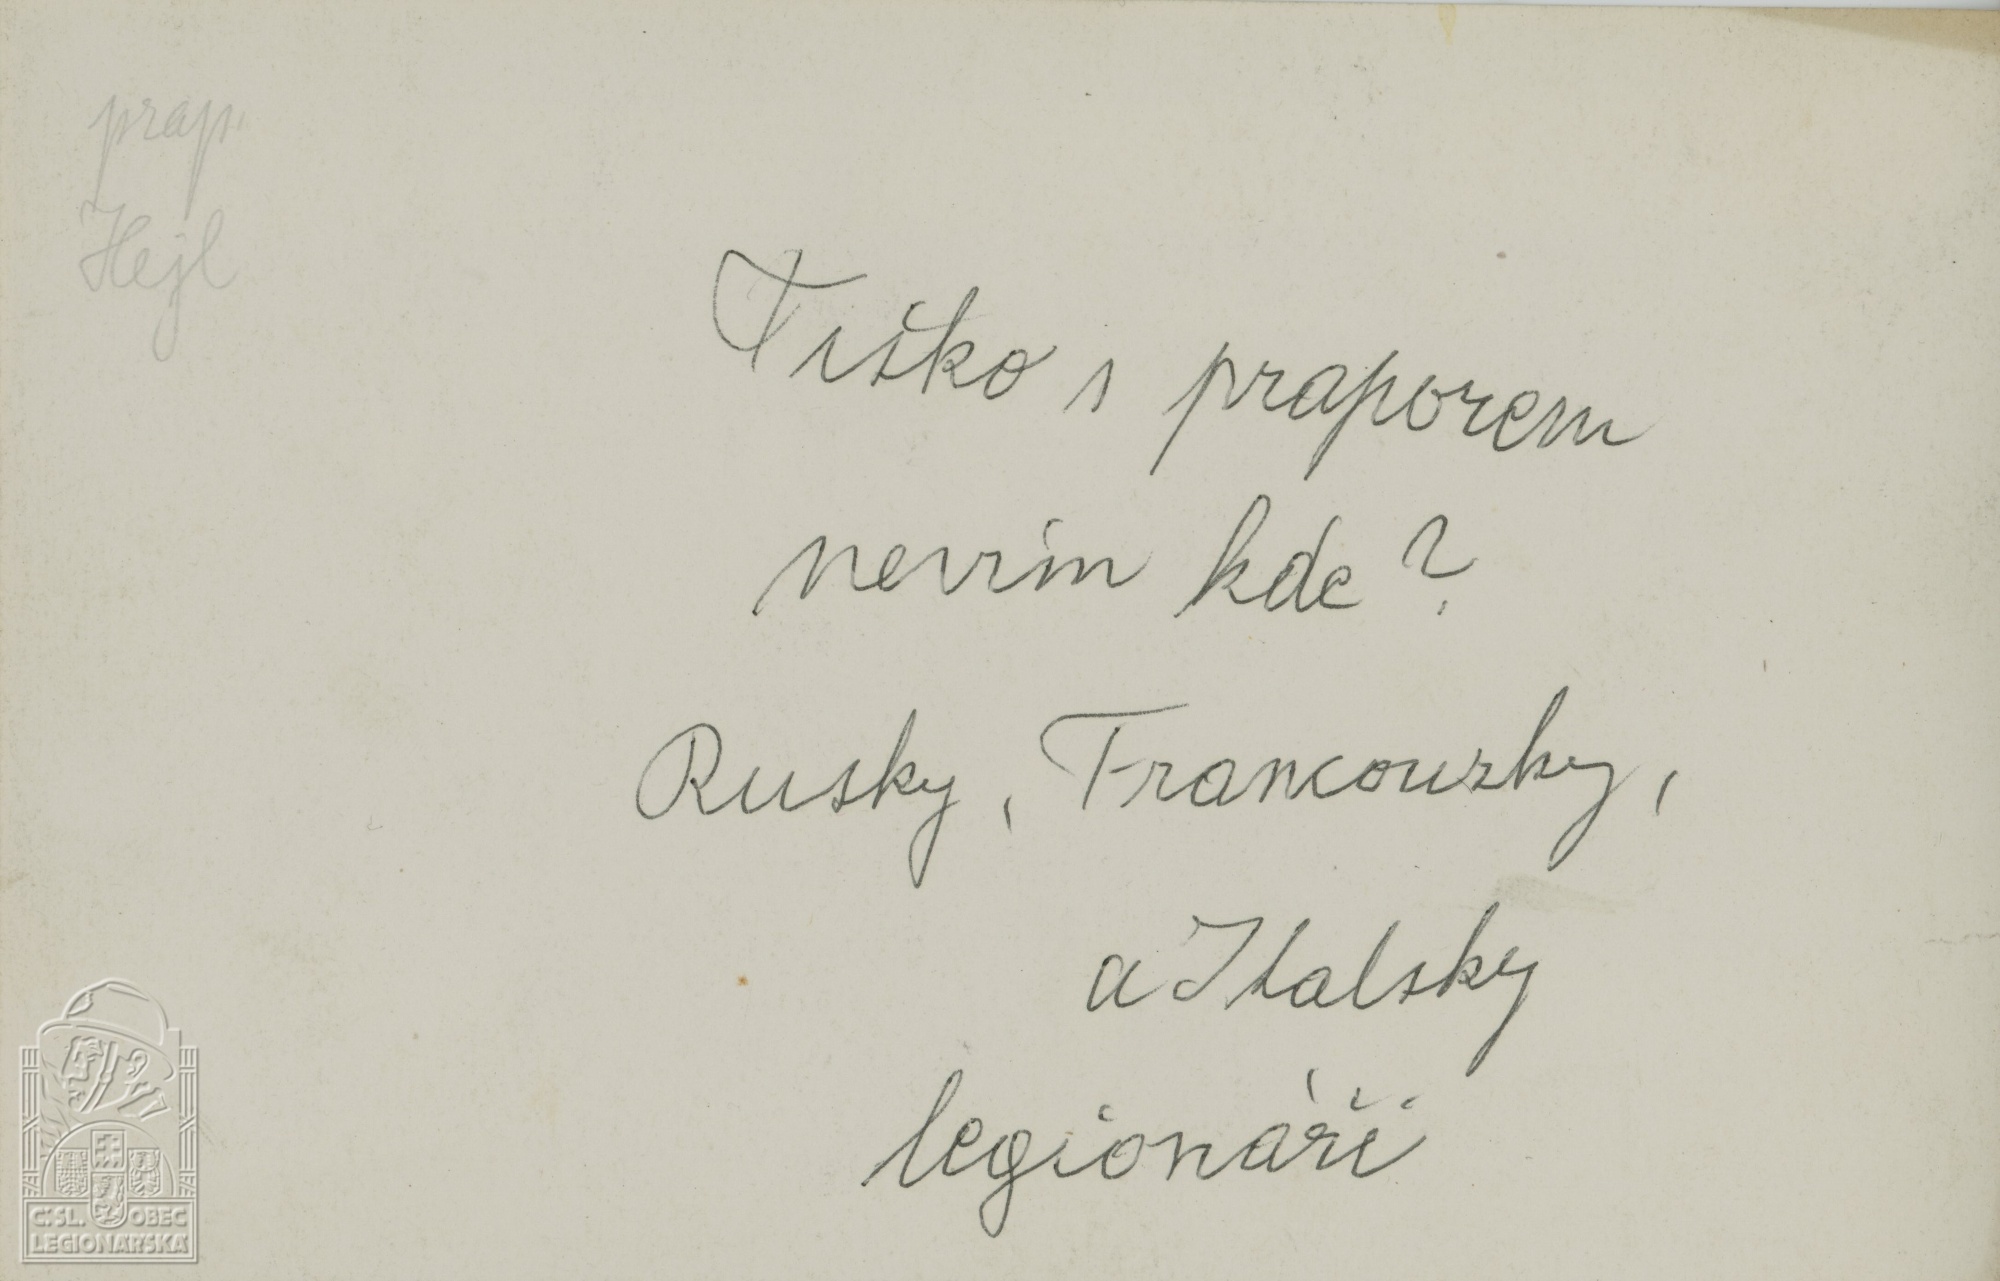 prap.
Hejl
Tiško s praporem
nevím kde?
Rusky, Francouzky,
a Italsky
legionáři
Č.SL. OBEC
LEGIONÁŘSKÁ